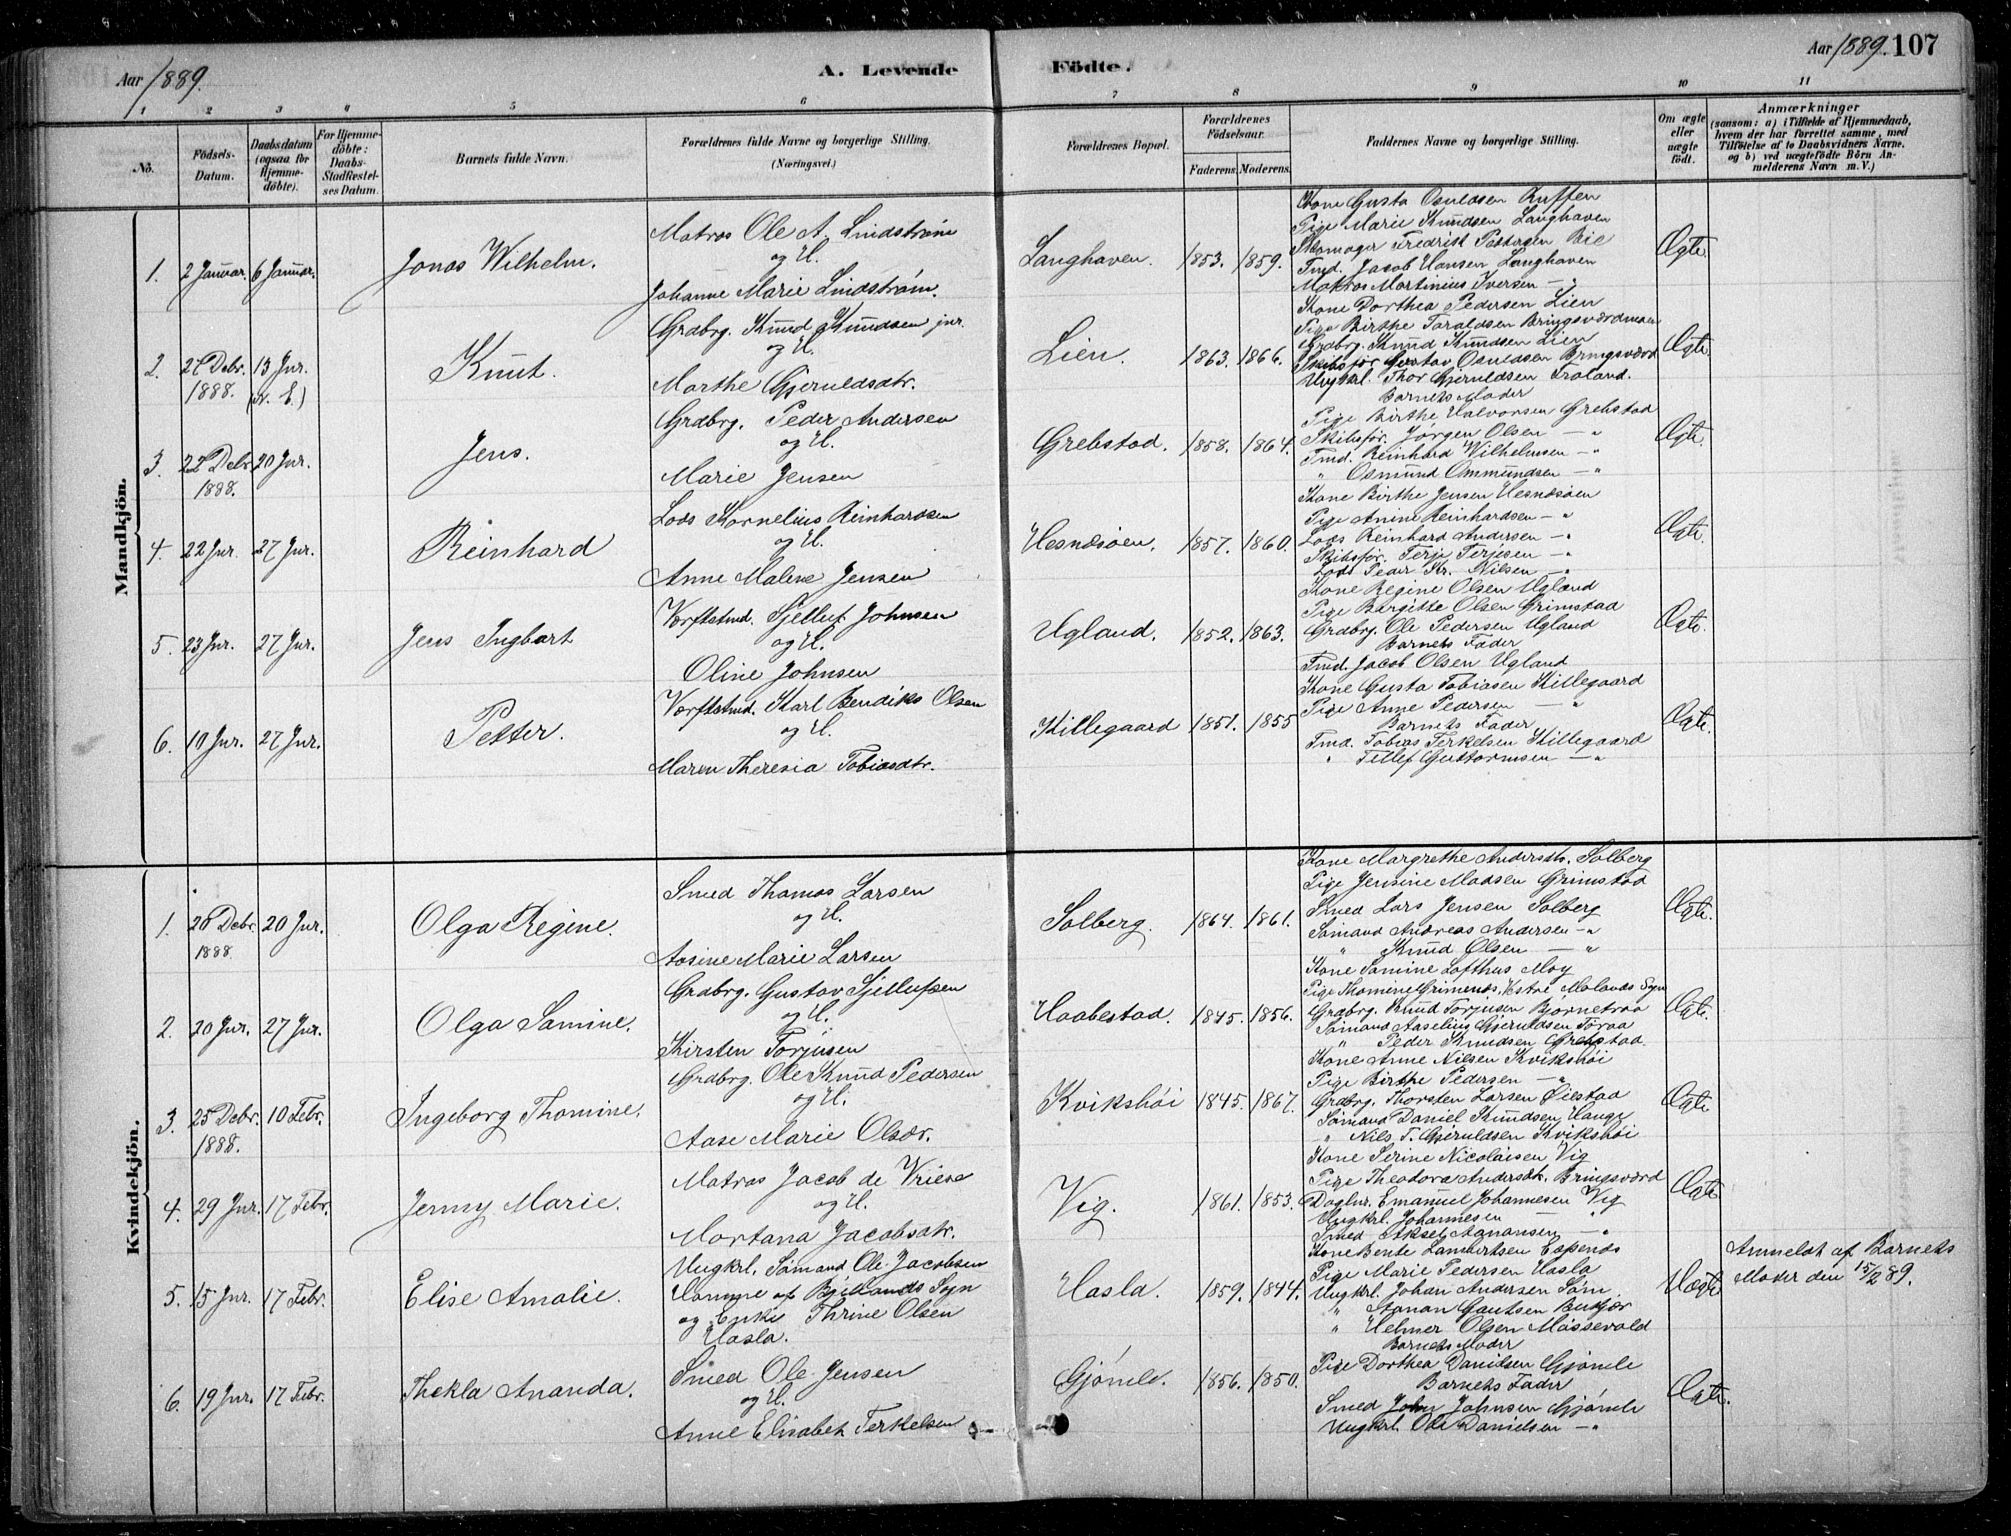 Aar 1889.
A. Levende Födte.
Aar 1889. 107
1 2 3 4 5 6 7 8 9 10 11
No.
Födsels-Datum.
Daabsdatum (ogsaa for Hjemmedöbte).
For Hjemmedöbte: Daabs-Stadfæstelses Datum.
Barnets fulde Navn.
Forældrenes fulde Navne og borgerlige Stilling.
(Næringsvei.)
Forældrenes Bopæl.
Forældrenes Födselsaar.
Faderens. Moderens.
Faddernes Navne og borgerlige Stilling.
Om ægte eller uægte födt.
Anmærkninger
(saasom: a) i Tilfælde af Hjemmedaab, hvem der har forrettet samme, med Tilföielse af to Daabsvidners Navne. og b) ved uægtefödte Börn Anmelderens Navn m. V.)
Mandkjön.
1. 2 Januar. 6 Januar. Jonas Wilhelm.
Matros Ole A. Lindstrøm
og H.
Johanne Marie Lindstrøm.
Langhaven. 1853. 1859.
Kone Gusta Osuldsen Ruffen
Pige Marie Knudsen Langhaven
Skomager Fredrik Pettersen Bie
Tmd. Jacob Hansen Langhaven
Matros Martinius Iversen — "
Ægte.
2. 27 Debr. 1888. 13 Jnr. (N. E.) Knut.
Grdbrg. Knud Knudsen jnr.
og H.
Marthe Gjeruldsdtr.
Lien. 1863. 1866.
Kone Dorthea Pedersen Lien
Pige Birthe Taraldsen Bringsværdmoen
Grdbrg. Knud Knudsen Lien
Skibsfør. Gustav Osuldsen Bringsværd
Ungkrl. Thor Gjeruldsen Froland.
Barnets Moder
Ægte.
3. 22 Debr. 1888. 20 Jnr. Jens.
Grdbrg. Peder Andersen
og H.
Marie Jensen
Grebstad. 1858. 1864.
Pige Birthe Halvorsen Grebstad
Skibsfør. Jørgen Olsen — "
Tmd. Reinhard Wilhelmsen — "
" Osmund Ommundsen — "
Ægte.
4. 22 Jnr. 27 Jnr. Reinhard
Lods Kornelius Reinhardsen
og H.
Anne Malene Jensen
Hesnæsøen. 1857. 1860.
Kone Birthe Jensen Hesnæsøen
Pige Anine Reinhardsen — "
Lods Reinhard Andersen — "
Skibsfør. Terje Terjesen — "
Lods Peder Kr. Nilsen — "
Ægte.
5. 23 Jnr. 27 Jnr. Jens Ingbart
Værftstmd. Sjelluf Johnsen
og H.
Oline Johnsen
Ugland. 1852. 1863.
Kone Regine Olsen Ugland
Pige Bargitte Olsen Grimstad
Grdbrg. Ole Pedersen Ugland
Barnets Fader
Tmd. Jacob Olsen Ugland
Ægte.
6. 10 Jnr. 27 Jnr. Petter.
Værftstmd. Karl Bendiks Olsen
og H.
Maren Theresia Tobiasdtr.
Killegaard 1851. 1855
Kone Gusta Tobiasen Killegaard
Pige Anne Pedersen — "
Barnets Fader
Tmd. Tobias Terkelsen Killegaard
" Tellef Guttormsen — "
Ægte.
Kvindekjön.
1. 26 Debr. 1888. 20 Jnr. Olga Regine.
Smed Thomas Larsen
og H.
Aasine Marie Larsen
Solberg. 1864. 1861.
Kone Margrethe Andersdtr. Solberg
Pige Jensine Madsen Grimstad
Smed Lars Jensen Solberg
Sømand Andreas Andersen — "
" Knud Olsen — "
Ægte.
2. 20 Jnr. 27 Jnr. Olga Samine.
Grdbrg. Gustav Sjellufsen
og H.
Kirsten Torjusen
Haabestad. 1845. 1856.
Kone Samine Lofthus Moy
Pige Thomine Grimenæs, Vestre Molands Sgn
Grdbrg. Knud Torjusen Bjørnetraa
Sømand Aaselius Gjeruldsen Toraa
" Peder Knudsen Grebstad.
Ægte.
3. 25 Debr. 1888. 10 Febr. Ingeborg Thomine.
Grdbrg. Ole Knud Pedersen
og H.
Aase Marie Olsdr.
Kvikshøi 1845. 1867.
Kone Anne Nilsen Kvikshøi
Pige Birthe Pedersen — "
Grdbrg. Thorsten Larsen Øiestad
Sømand Daniel Knudsen Hauge
" Nils T. Gjeruldsen Kvikshøi
Ægte
4. 29 Jnr. 17 Febr. Jenny Marie.
Matros Jacob de Vriese
og H.
Mortana Jacobsdtr.
Vig. 1861. 1853.
Kone Serine Nicolaisen Vig
Pige Theodora Andersdtr. Bringsværd
Daglnr. Emanuel Johannesen Vig
Ungkrl. Johannesen — "
Smed Aksel Aanansen — "
Ægte
5. 15 Jnr. 17 Febr. Elise Amalie.
Ungkrl. Sømand Ole Jacobsen
Hamme af Sgn
og Enke Thrine Olsen
Hasla.
Hasla. 1859. 1844.
Kone Bente Lambertsen Espenes
Pige Marie Pedersen Hasla
Ungkrl. Johan Andersen Søm.
" Aanan Gautsen Budkjær
" Helmer Olsen Møssevold
Barnets Moder
Uægte
Anmeldt af Barnets
Moder den 15/2 89.
6. 19 Jnr. 17 Febr. Thekla Ananda.
Smed Ole Jensen
og H.
Anne Elisabeth Terkelsen
Gjømle. 1856. 1850.
Pige Dorthea Danielsen Gjømle
Barnets Fader
Smed John Johnsen Gjømle
Ungkrl. Ole Danielsen — "
Ægte.